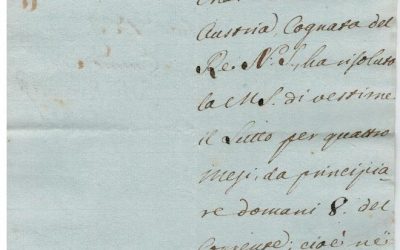 Austria, Cognata del
Re N. S., ha risoluto
la M.S. di vestirne
il Lutto per quattro
Mesi, da principia
re domani 8. del
Corrente; cioè nè